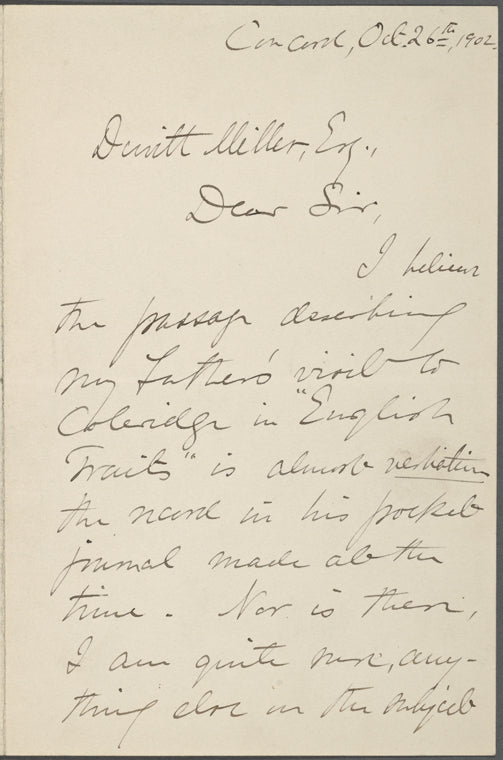 Concord, Oct. 26th, 1902.
Dewitt Miller, Esq.,
Dear Sir,
I believe
the passage describing
my Father's visit to
Coleridge in "English
Traits" is almost verbatim
the record in his pocket
journal made at the
time. Nor is there,
I am quite sure, any-
thing else on the subject